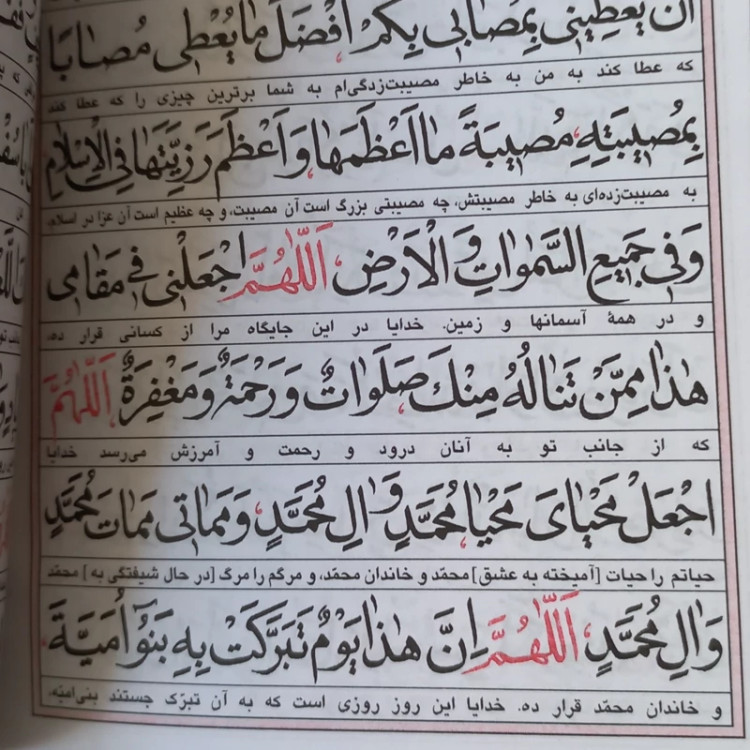 اَنْ يُعْطِيَنى بِمُصابى بِكُمْ اَفْضَلَ ما يُعْطى مُصاباً
که عطا کند به من به خاطر مصیبت‌زدگی‌ام به شما برترین چیزی را که عطا کند
بِمُصيبَتِهِ، مُصيبَةً ما اَعْظَمَها وَ اَعْظَمَ رَزِيَّتَها فِى الْاِسْلامِ
به مصیبت‌زده‌ای به خاطر مصیبتش، چه مصیبتی بزرگ است آن مصیبت، و چه عظیم است آن عزا در اسلام،
وَ فى جَميعِ السَّمٰواتِ وَ الْاَرْضِ، اَللّٰهُمَّ اجْعَلْنى فى مَقامى
و در همهٔ آسمانها و زمین. خدایا در این جایگاه مرا از کسانی قرار ده،
هٰذا مِمَّنْ تَنالُهُ مِنْكَ صَلَواتٌ وَ رَحْمَةٌ وَ مَغْفِرَةٌ، اَللّٰهُمَّ
که از جانب تو به آنان درود و رحمت و آمرزش می‌رسد خدایا
اجْعَلْ مَحْياىَ مَحْيا مُحَمَّدٍ وَ الِ مُحَمَّدٍ، وَ مَماتى مَماتَ مُحَمَّدٍ
حیاتم را حیات [آمیخته به عشق] محمّد و خاندان محمّد، و مرگم را مرگ [در حال شیفتگی به] محمّد
وَ الِ مُحَمَّدٍ، اَللّٰهُمَّ اِنَّ هٰذا يَوْمٌ تَبَرَّكَتْ بِهِ بَنُو اُمَيَّةَ،
و خاندان محمّد قرار ده. خدایا این روز روزی است که به آن تبرّک جستند بنی‌امیّه،